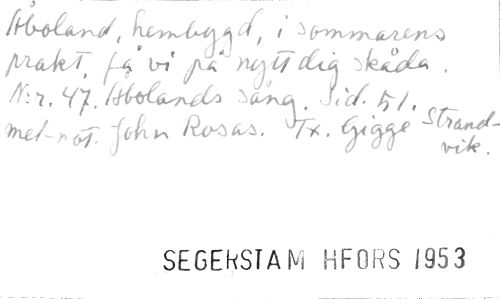 Åboland, hembygd, i sommarens
prakt, få vi på nytt dig skåda.
N:r. 47. Åbolands sång. Sid. 51.
mel-not. John Rosas. Tx. Gigge Strand-
vik.
SEGERSTAM HFORS 1953